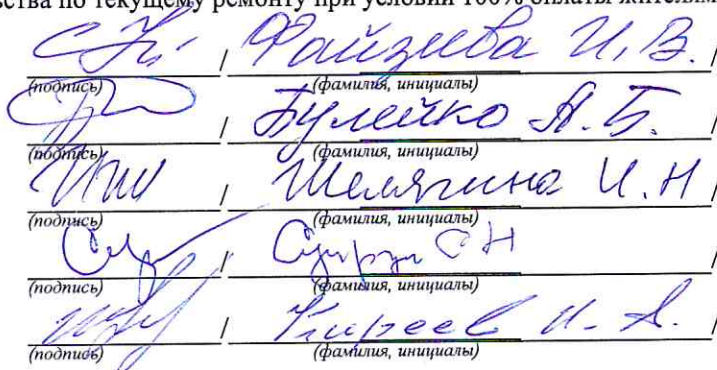 ства по текущему ремонту при условии 100% оплаты жителям
/ Файзиева И. В. /
(подпись) (фамилия, инициалы)
/ Булейко А. Б. /
(подпись) (фамилия, инициалы)
/ Шелягина И. Н /
(подпись) (фамилия, инициалы)
/ С Н /
(подпись) (фамилия, инициалы)
/ Киреев И. А. /
(подпись) (фамилия, инициалы)